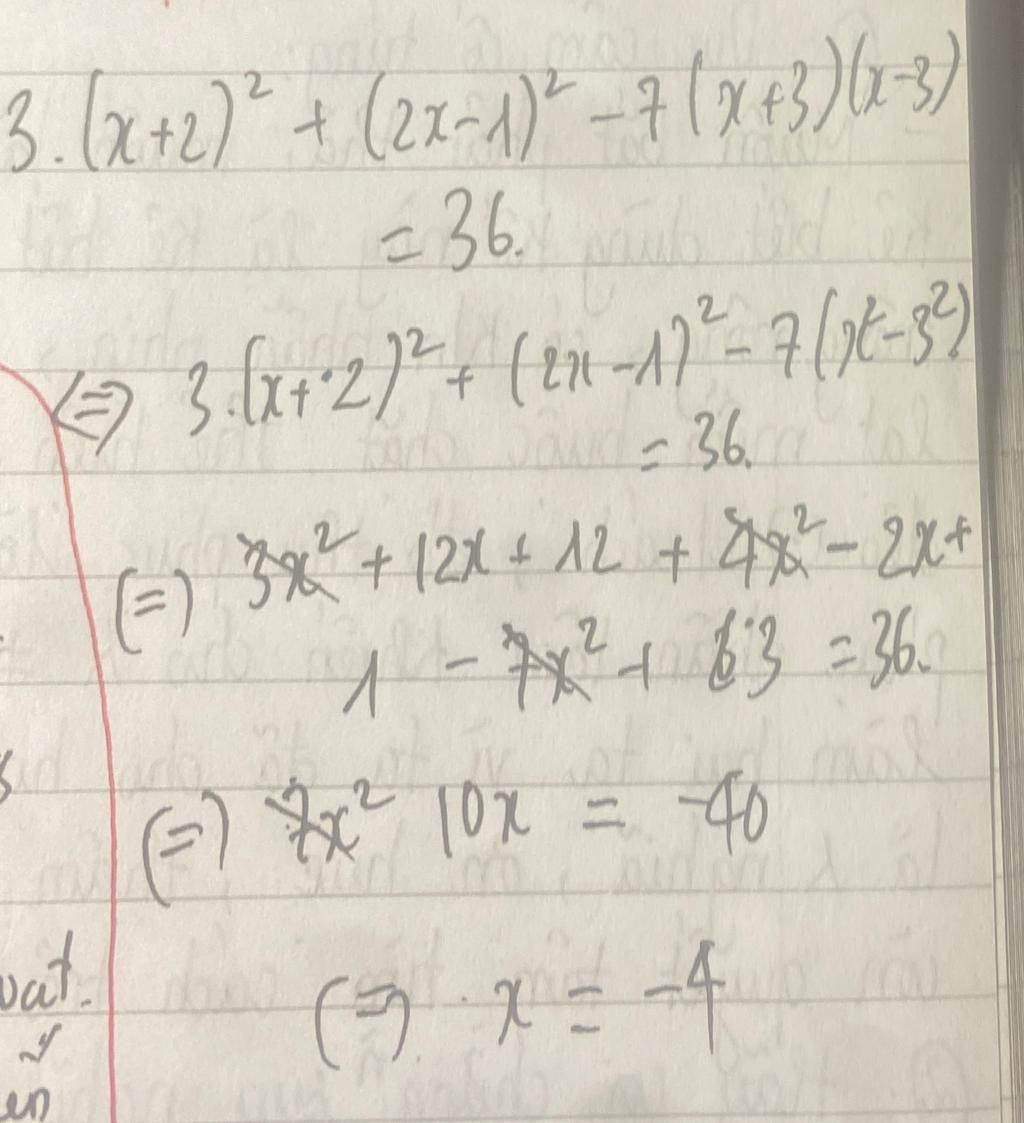 3.(x+2)² + (2x-1)² - 7(x+3)(x-3)
= 36.
⇔ 3.(x+2)² + (2x-1)² - 7(x²-3²)
= 36.
(=) 3x² + 12x + 12 + 4x² - 2x +
1 - 7x² + 63 = 36.
(=) 7x² 10x = -40
(=) x = -4
vat.
en